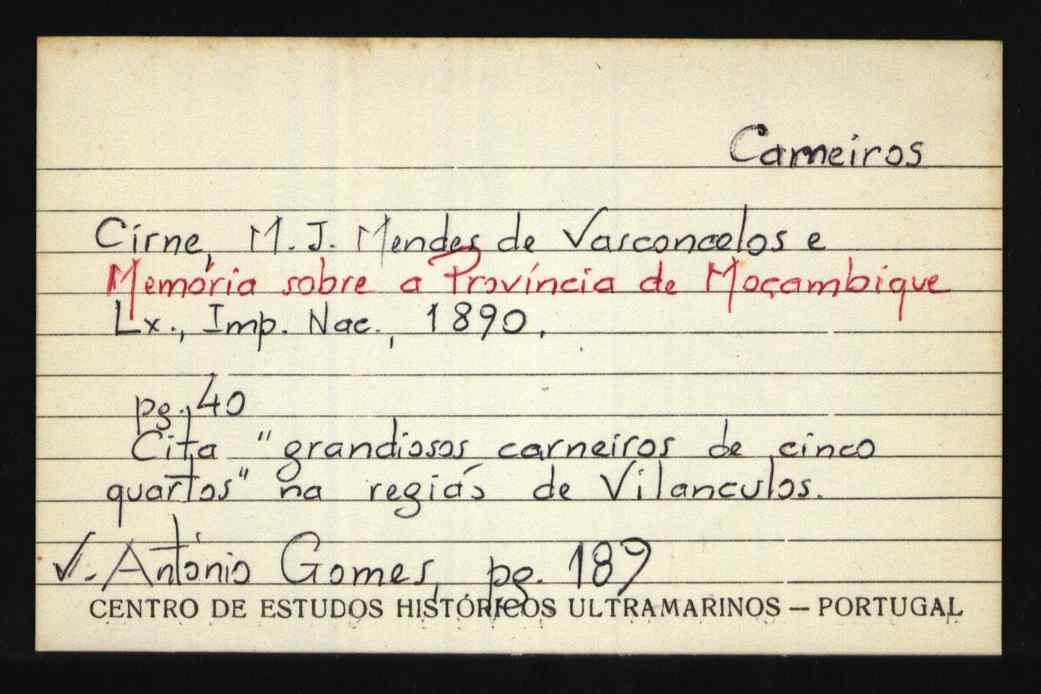 Carneiros
Cirne, M. J. Mendes de Vasconcelos e
Memória sobre a Província de Moçambique
Lx., Imp. Nac., 1890.
pg. 40
Cita "grandiosos carneiros de cinco
quartos" na região de Vilanculos.
V. António Gomes, pg. 189
CENTRO DE ESTUDOS HISTÓRICOS ULTRAMARINOS — PORTUGAL